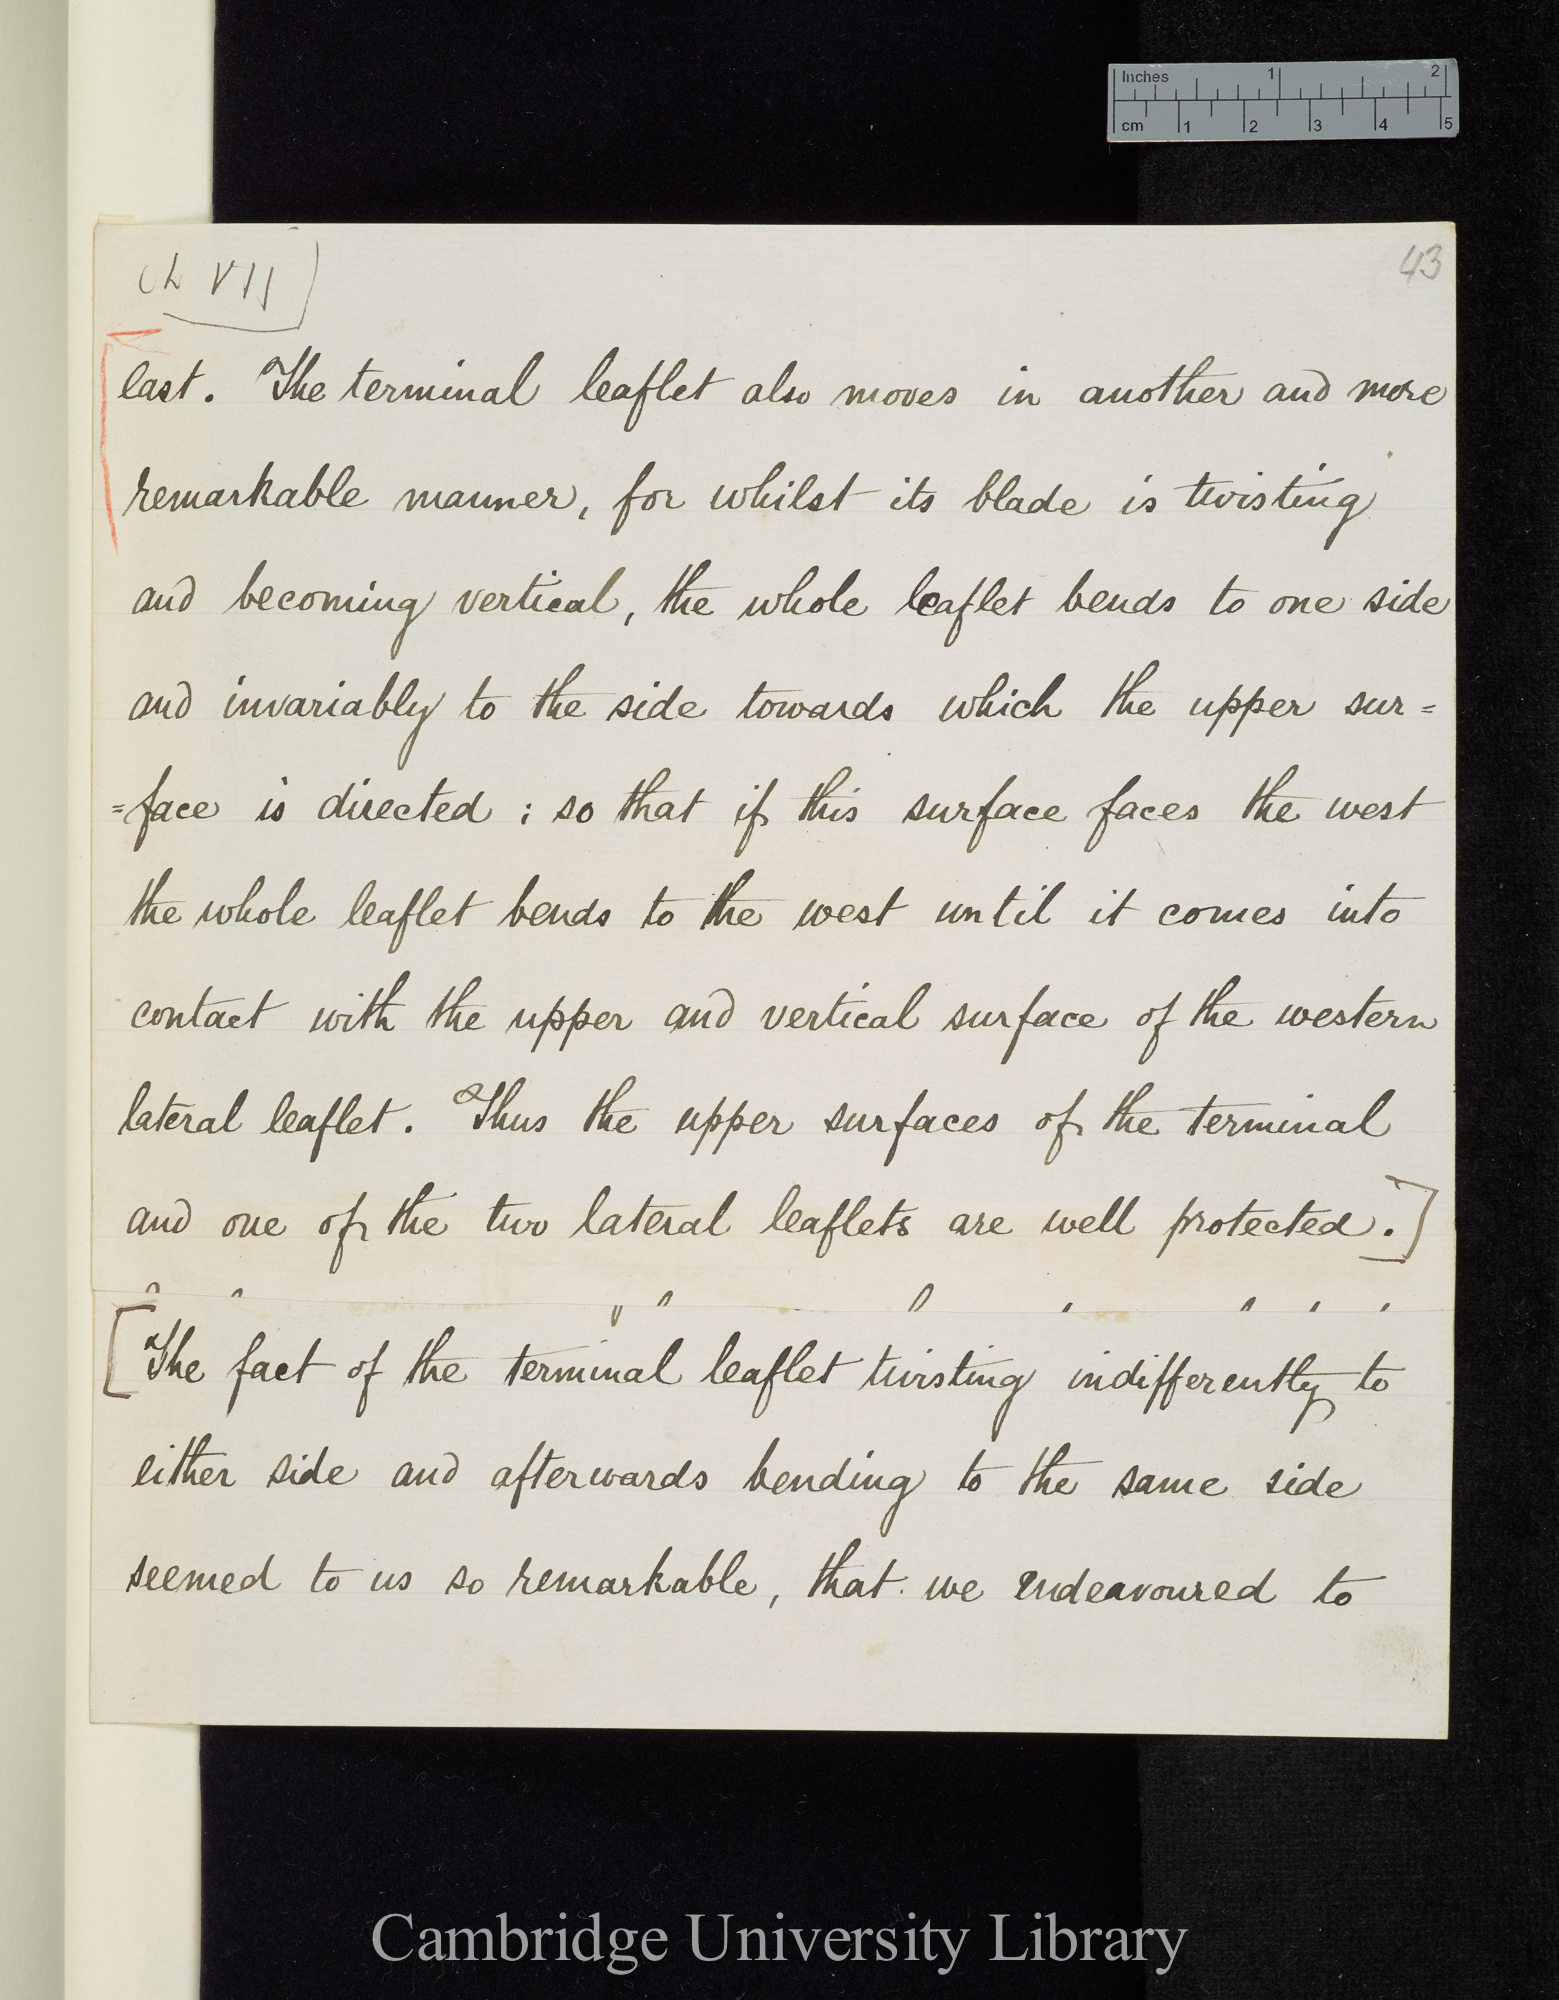 Inches 1 2
cm 1 2 3 4 5
Ch VII
43
last. The terminal leaflet also moves in another and more
remarkable manner, for whilst its blade is twisting
and becoming vertical, the whole leaflet bends to one side
and invariably to the side towards which the upper sur=
=face is directed ; so that if this surface faces the west
the whole leaflet bends to the west until it comes into
contact with the upper and vertical surface of the western
lateral leaflet. Thus the upper surfaces of the terminal
and one of the two lateral leaflets are well protected.]
[The fact of the terminal leaflet twisting indifferently to
either side and afterwards bending to the same side
seemed to us so remarkable, that we endeavoured to
Cambridge University Library